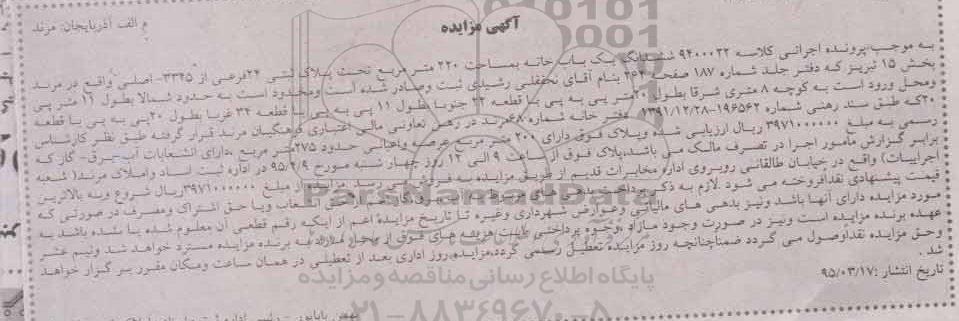 آگهی مزایده
م الف آذربایجان: مرند
به موجب پرونده اجرائی کلاسه ۹۴۰۰۰۳۲ ششدانگ یک باب خانه بمساحت ۲۲۰ متر مربع تحت پلاک ثبتی ۲۴فرعی از ۳۳۴۵-اصلی واقع در مرند
بخش ۱۵ تبریز که دفتر جلد شماره ۱۸۷ صفحه ۲۶۴ بنام آقای نجفقلی رشیدی ثبت وصادر شده است ومحدود است به حدود شمالا بطول ۱۱ متر پی
ومحل ورود است به کوچه ۸ متری شرقا بطول ۲۰متر پی به پی با قطعه ۲۲ جنوبا بطول ۱۱ پی به پی با قطعه ۳۳ غربا بطول ۲۰پی به پی با قطعه
۲۰که طبق سند رهنی شماره ۱۹۶۵۶۲-۱۳۹۱/۱۲/۲۸ دفتر خانه شماره ۶۸مرند در رهن تعاونی مالی اعتباری فرهنگیان مرند قرار گرفته طبق نظر کارشناس
رسمی به مبلغ ۳۹۷۱۰۰۰۰۰۰ ریال ارزیابی شده وپلاک فوق دارای ۲۰۰ متر مربع عرصه واعیانی حدود ۲۷۵متر مربع ,دارای انشعابات آب-برق- گاز که
برابر گزارش مأمور اجرا در تصرف مالک می باشد,پلاک فوق از ساعت ۹ الی ۱۲ روز چهار شنبه مورخ ۹۵/۴/۹ در اداره ثبت اسناد واملاک مرند( شعبه
اجراییات) واقع در خیابان طالقانی روبروی اداره مخابرات قدیم از طریق مزایده به فروش می رسد مزایده از مبلغ ۳۹۷۱۰۰۰۰۰۰ریال شروع وبه بالاترین
قیمت پیشنهادی نقدافروخته می شود .لازم به ذکر پرداخت بدهی های مربوط به آب برق گاز اعم از حق انشعاب ویا حق اشتراک ومصرف در صورتی که
مورد مزایده دارای آنها باشد ونیز بدهی های مالیاتی وعوارض شهرداری وغیره تا تاریخ مزایده اعم از اینکه رقم قطعی آن معلوم شده یا نشده باشد به
عهده برنده مزایده است ونیز در صورت وجود مازاد ,وجوه پرداختی بابت هزینه های فوق از محل مازاد به برنده مزایده مسترد خواهد شد ونیم عشر
وحق مزایده نقداوصول می گردد ضمناچنانچه روز مزایده تعطیل رسمی گردد,مزایده,روز اداری بعد از تعطیلی در همان ساعت ومکان مقرر بر گزار خواهد
شد .
تاریخ انتشار :۹۵/۰۳/۱۷
ParsNamadData
پایگاه اطلاع رسانی مناقصه و مزایده
۰۲۱-۸۸۳۴۹۶۷۰-۵